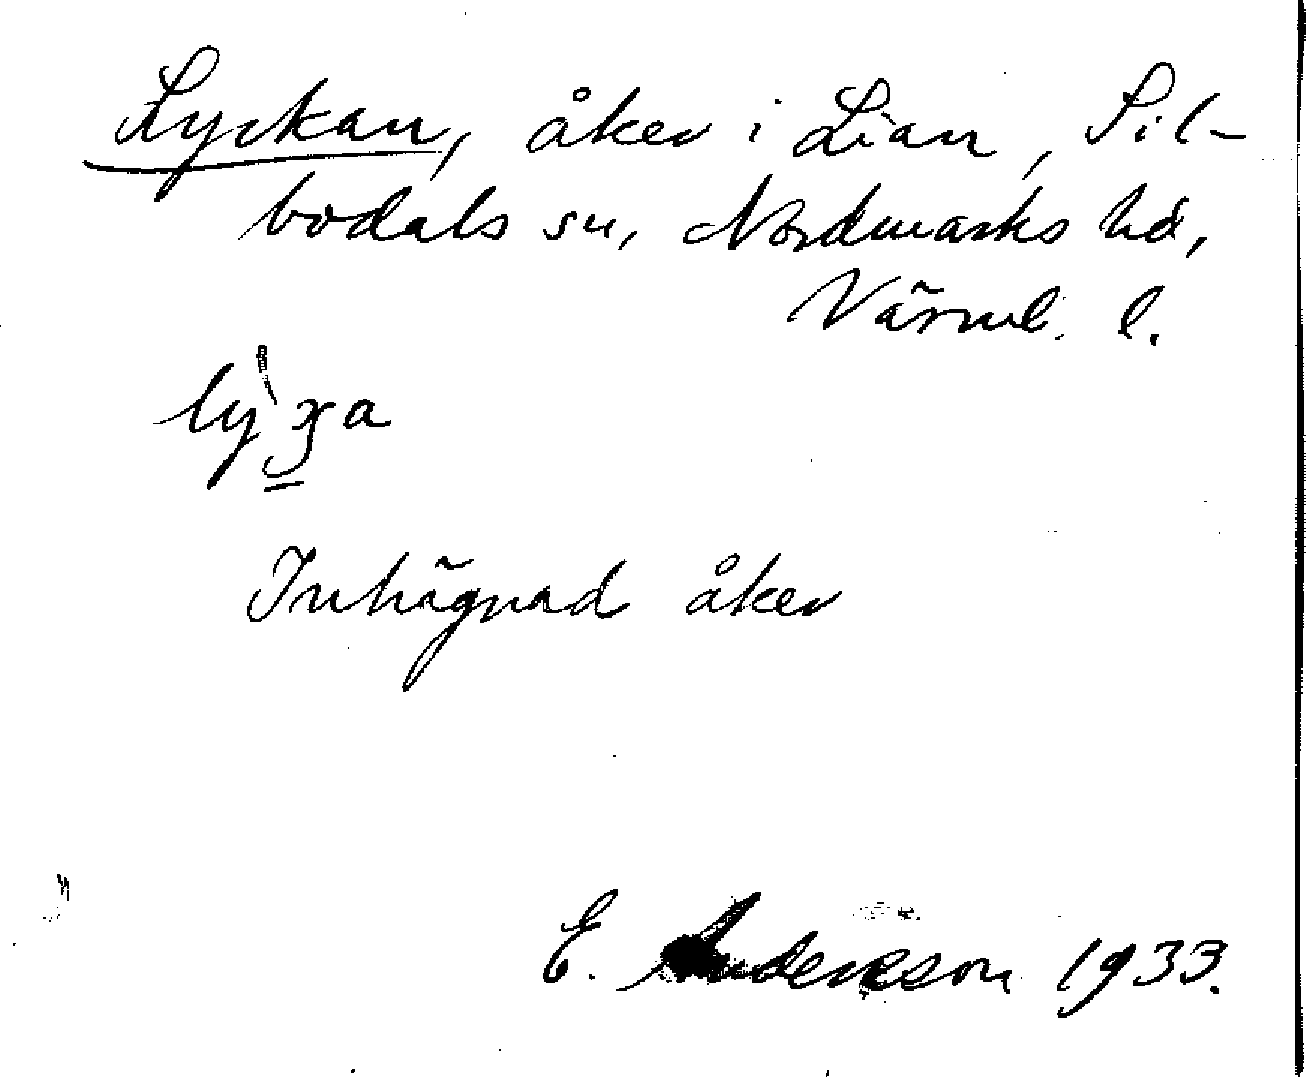 Lyckan, åker i Lian, Sil-
bodals sn, Nordmarks hd,
Värml. l.
Inhägnad åker
E. Andersson 1933.